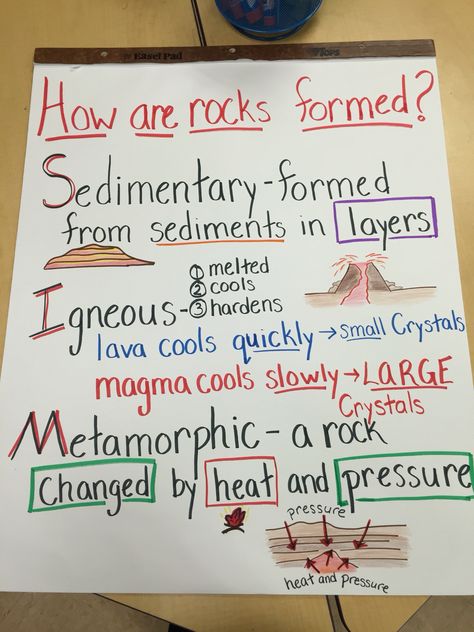 Easel Pad
How are rocks formed?
Sedimentary-formed
from sediments in layers
① melted
② cools
Igneous-③ hardens
lava cools quickly → small Crystals
magma cools slowly → LARGE
Crystals
Metamorphic - a rock
changed by heat and pressure
pressure
heat and pressure